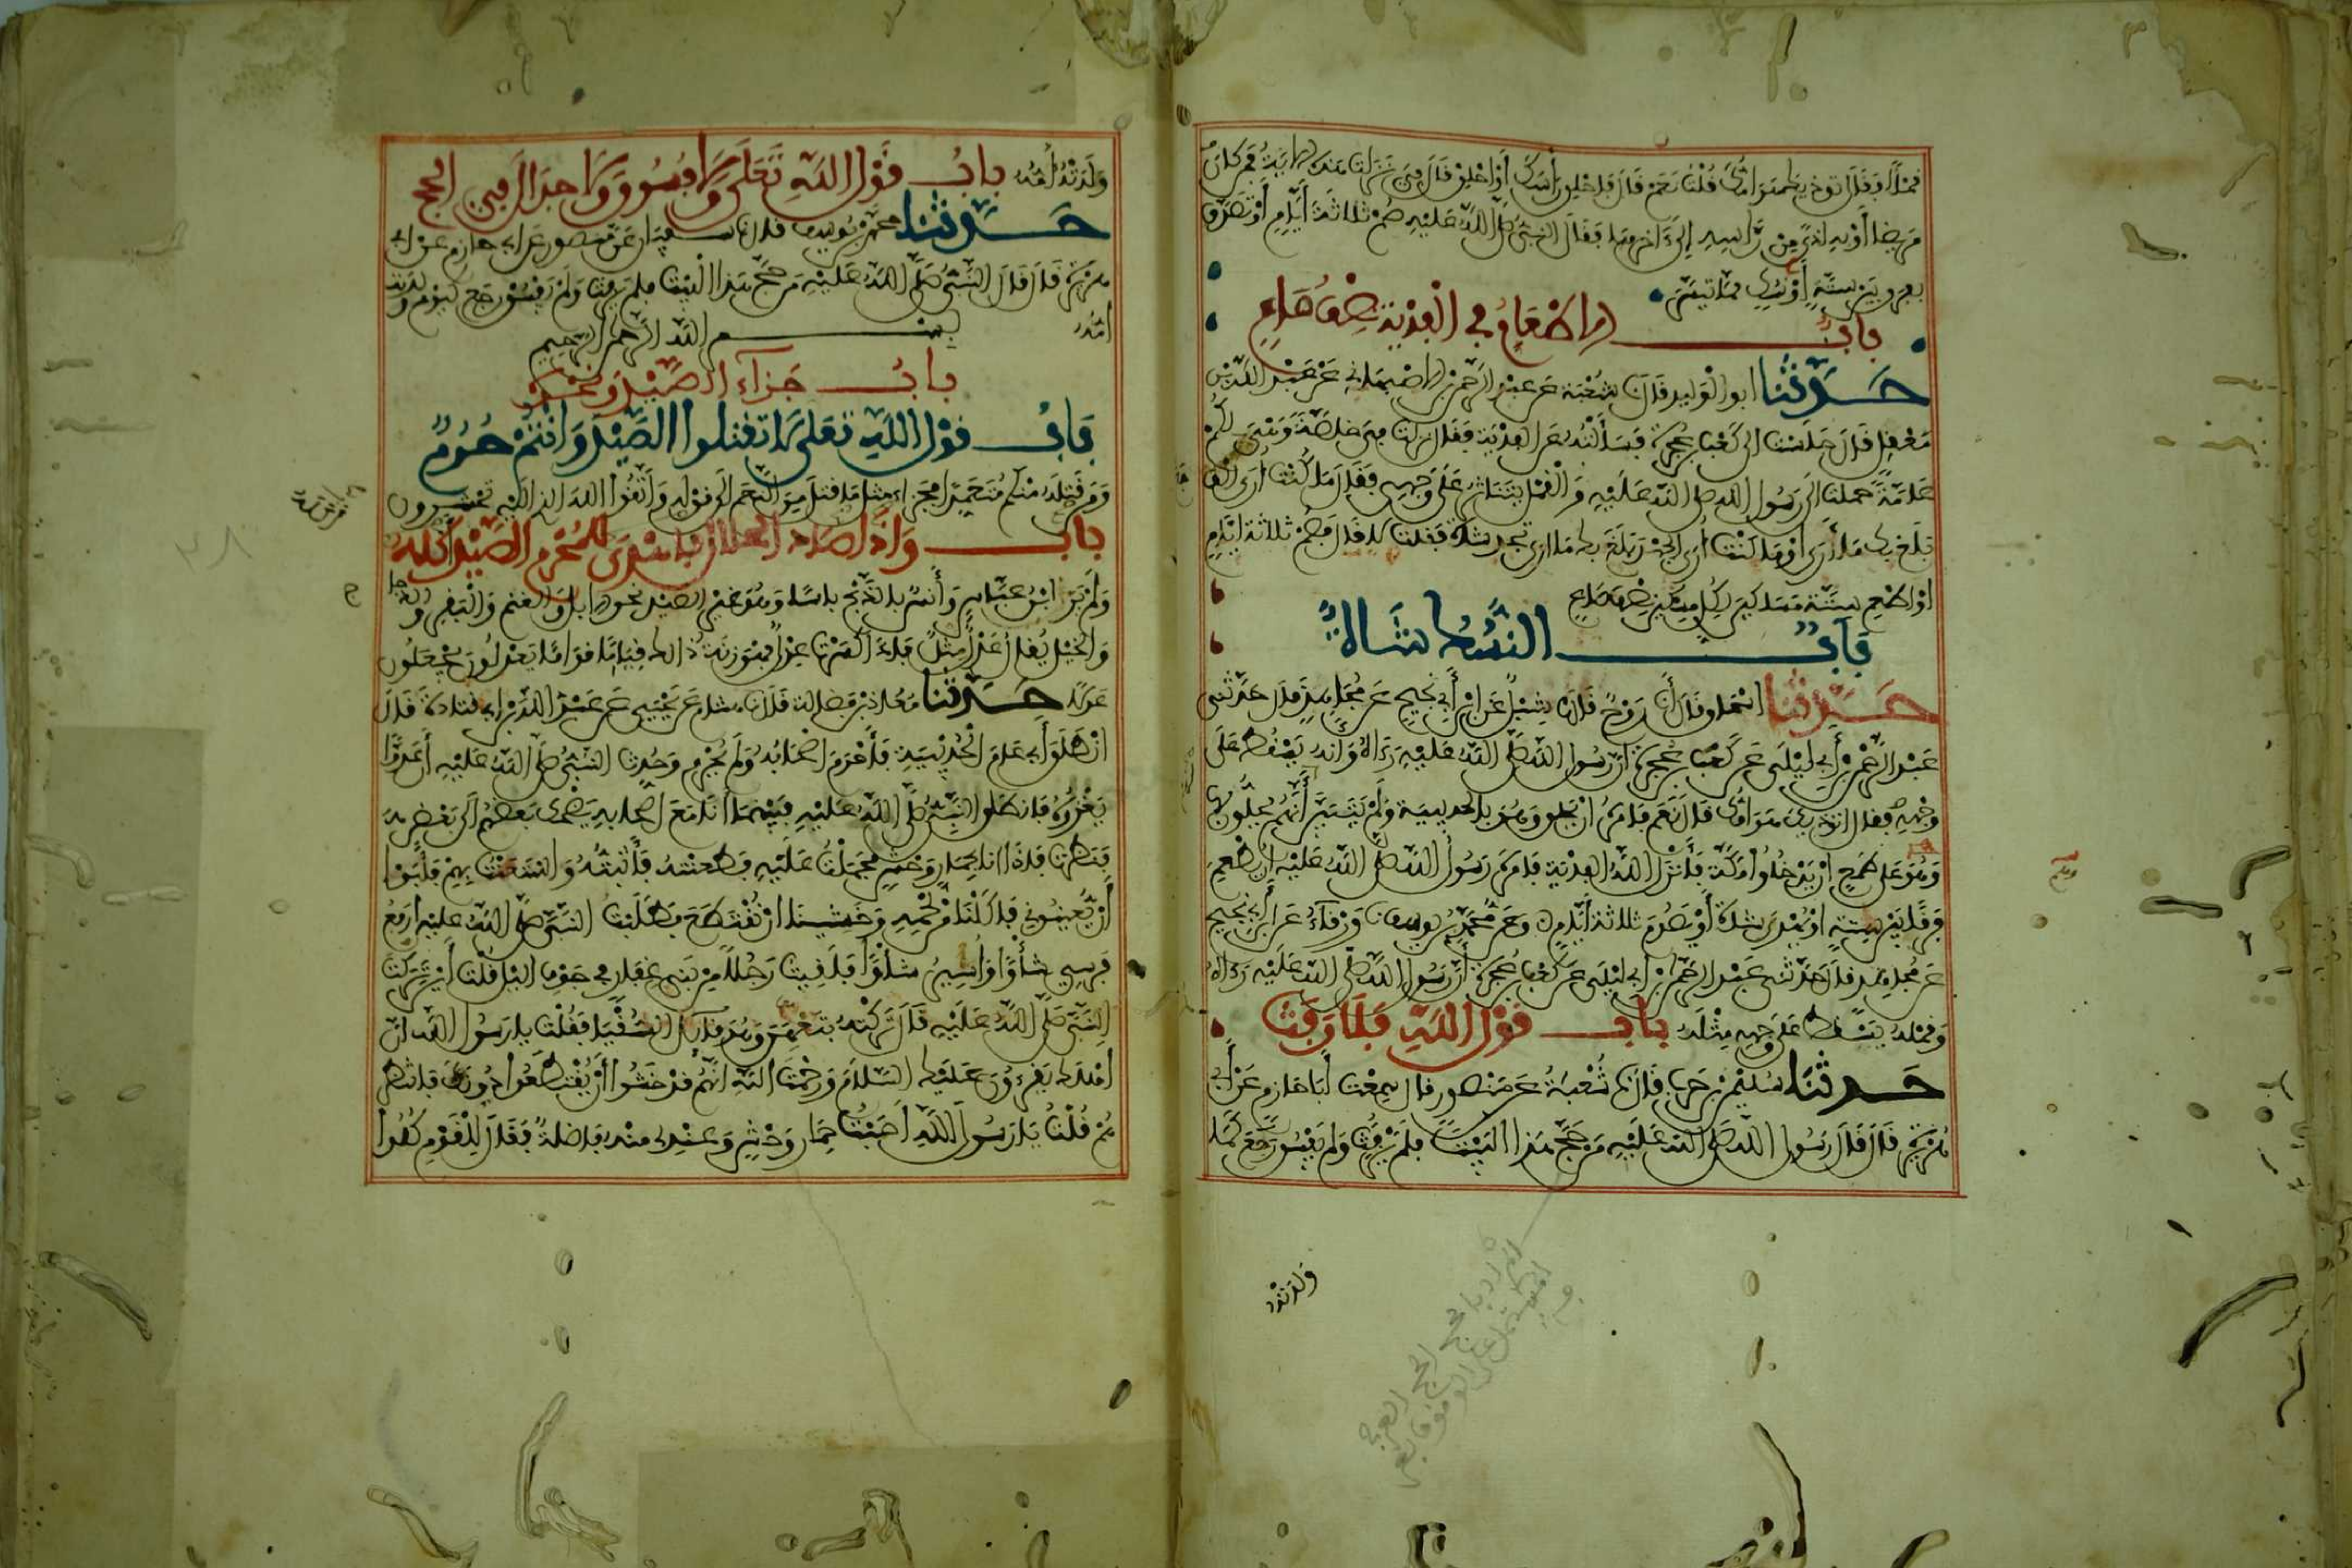 قملا فقال أتوذيك هوامك قلت نعم قال فاحلق رأسك أو احلق قال في نزلت هذه الاية فمن كان
مريضا أو به أذى من رأسه إلى ءاخرها فقال النبي صلى الله عليه صم ثلاثة أيام أو تصدق
بفرق بين ستة أو نسك مما تيسر
باب الاطعام في الفدية نصف صاع
حدثنا ابو الوليد قال نا شعبة عن عبد الرحمن بن الاصبهاني عن عبد الله بن
معقل قال جلست الى كعب بن عجرة فسألته عن الفدية فقال نزلت في خاصة وهي لكم
عامة حملت الى رسول الله صلى الله عليه والقمل يتناثر على وجهي فقال ما كنت أرى الوجع
بلغ بك ما أرى أو ما كنت أرى الجهد بلغ بك ما ارى تجد شاة فقلت لا فقال فصم ثلاثة ايام
او اطعم ستة مساكين لكل مسكين نصف صاع
باب النسك شاة
حدثنا اسحاق قال نا روح قال نا شبل عن ابن أبي نجيح عن مجاهد قال حدثني
عبد الرحمن بن أبي ليلى عن كعب بن عجرة أن رسول الله صلى الله عليه رءاه وانه يسقط على
وجهه فقال اتوذيك هوامك قال نعم فامره ان يحلق وهو بالحديبية ولم يتبين أنهم يحلون بها
وهم على طمع ان يدخلوا مكة فأنزل الله الفدية فامره رسول الله صلى الله عليه ان يطعم
فرقا بين ستة او يهدي شاة أو يصوم ثلاثة أيام وعن محمد بن يوسف نا ورقاء عن ابن أبي نجيح
عن مجاهد قال حدثني عبد الرحمن بن ابي ليلى عن كعب بن عجرة أن رسول الله صلى الله عليه رءاه
وقمله يسقط على وجهه مثله باب قول الله فلا رفث
حدثنا سليمن بن حرب قال نا شعبة عن منصور قال سمعت أبا حازم عن أبي
هريرة قال قال رسول الله صلى الله عليه من حج هذا البيت فلم يرفث ولم يفسق رجع كما
ولدته
ولدته أمه باب قول الله تعلى ولا فسوق ولا جدال في الحج
حدثنا محمد بن يوسف قال نا سفين عن منصور عن ابي حازم عن ابي
هريرة قال قال النبي صلى الله عليه من حج هذا البيت فلم يرفث ولم يفسق رجع كيوم ولدته
امه بسم الله الرحمن الرحيم
باب جزاء الصيد ونحوه
باب قول الله تعلى لا تقتلوا الصيد وأنتم حرم
ومن قتله منكم متعمدا فجزاء مثل ما قتل من النعم الى قوله واتقوا الله الذي اليه تحشرون
باب وإذا صاد الحلال فاهدى للمحرم الصيد أكله
ولم ير ابن عباس وأنس بالذبح باسا وهو غير الصيد نحو الابل والغنم والبقر والدجاج
والخيل يقال عدل مثل فاذا كسرت عدل فهو زنة ذالك قياما قواما يعدلون يجعلون
عدلا حدثنا معاذ بن فضالة قال نا هشام عن يحيى عن عبد الله بن ابي قتادة قال
انطلق أبي عام الحديبية فأحرم اصحابه ولم يحرم وحدث النبي صلى الله عليه أن عدوا
يغزوه فانطلق النبي صلى الله عليه فبينما أنا مع اصحابه يضحك بعضهم الى بعض
فنظرت فاذا انا بحمار وحش فحملت عليه فطعنته فأثبته واستعنت بهم فأبوا
أن يعينوني فاكلنا من لحمه وخشينا ان نقتطع فطلبت النبي صلى الله عليه أرفع
فرسي شأوا وأسير شأوا فلقيت رجلا من بني غفار في جوف اليل قلت أين تركت
النبي صلى الله عليه قال تركته بتعهن وهو قائل السقيا فقلت يا رسول الله ان
اهلك يقرءون عليك السلام ورحمت الله انهم قد خشوا أن يقتطعوا دونك فانتظرهم
ثم قلت يا رسول الله أصبت حمار وحش وعندي منه فاضلة فقال للقوم كلوا